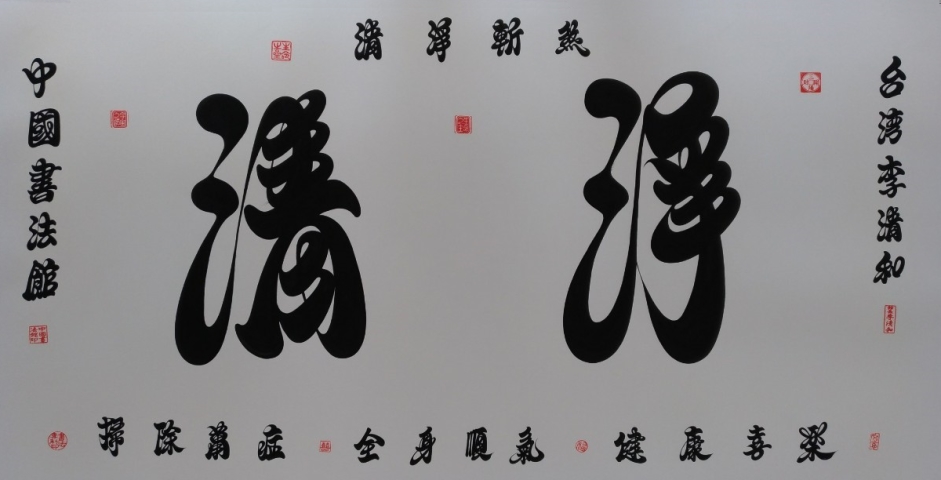 清淨斬煞
清淨
中國書法館
台湾李清和
掃除萬症 全身順氣 健康喜樂